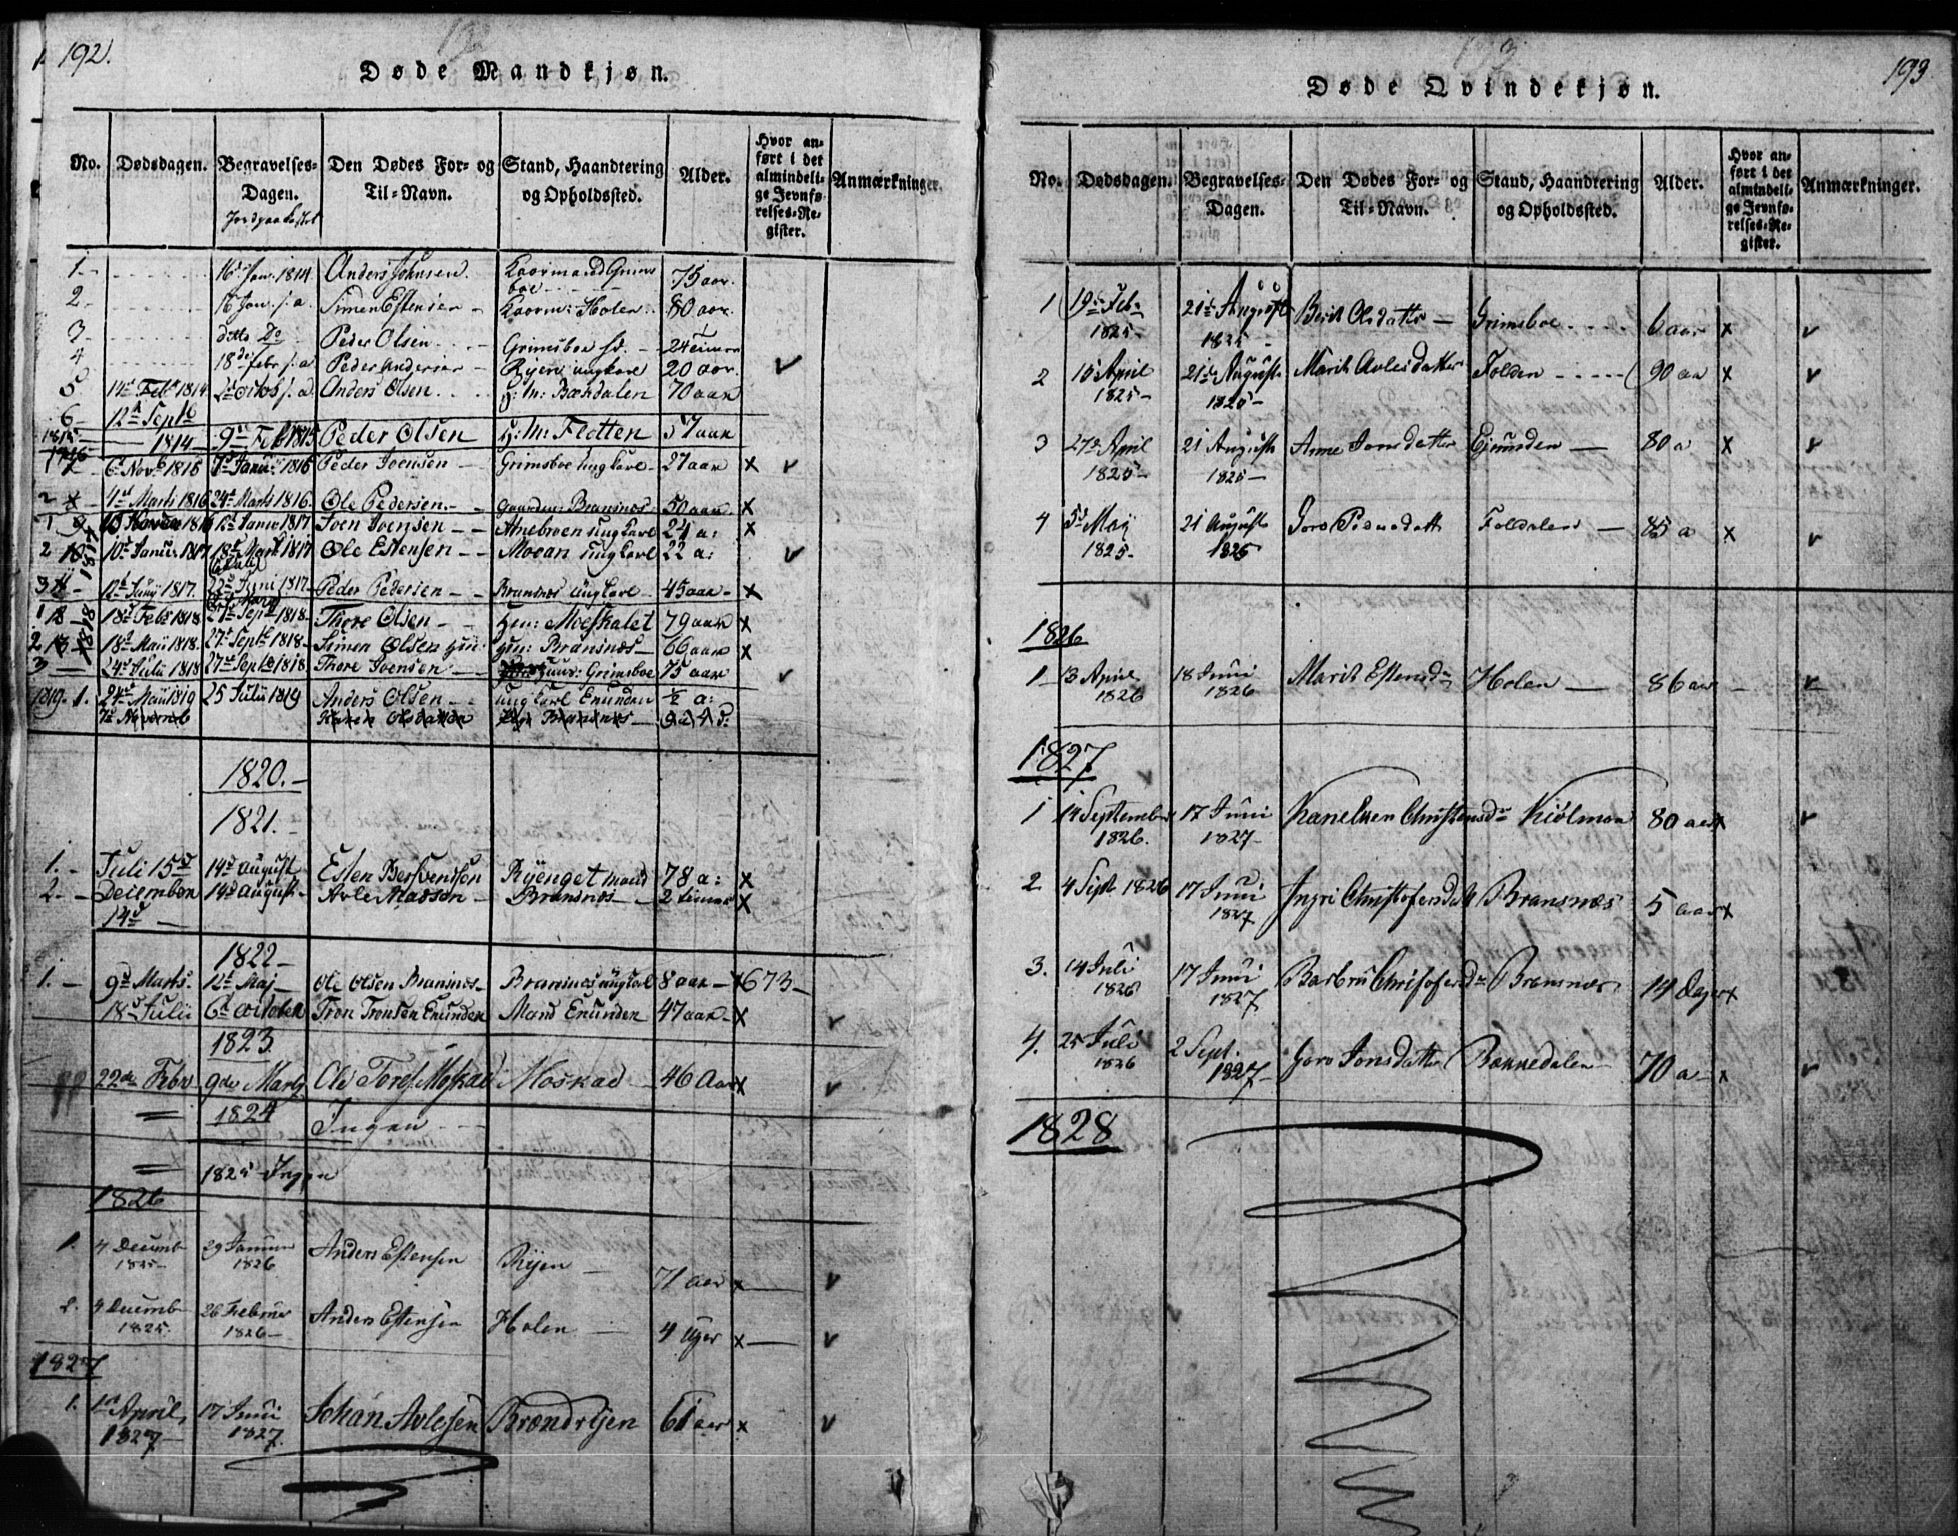 192.
Døde Mandkjøn.
No. Dødsdagen. Begravelses-Dagen. Den Dødes For- og Til-Navn. Stand, Haandtering og Opholdssted. Alder. Hvor anført i det almindelige Jevnførelses-Register. Anmærkninger.
Jordpaakastet
1 16 Janr 1814 Anders Johnsen Grimsboe 75 aar
2 16 Janr s. a. Simen Estensen Holen 80 aar
3 ditto Do Peder Olsen Grimsboe 24 timer
4 18de Febr s. a. Peder Andersen Ryen ungkarl 20 aar
5 14de Febr 1814 s. a. Anders Olsen H: M: Bækdalen 70 aar
6 12te Septb 1814 9de Feb 1815 Peder Olsen H: M: Flotten 57 aar
1815
1816
Novb 1815 Janu: 1816 Peder Joensen Grimsboe ungkarl 27 aar x
2 4de Marts 1816 24de Marts 1816 Ole Pedersen Bransnes 50 aar x
1 1817 Joen Joensen Ungkarl 24 a: x
2 10de Januar 1817 18de Marts 1817 Ole Estensen Moean ungkarl 22 a:
3 12te Junij 1817 22de Juni 1817 Peder Pedersen Bransnes ungkarl 45 aar x
1817
1 18de Feb 1818 27de Septb 1818 Thore Olsen Moeskalet 79 aar x
2 18de Maii 1818 27de Septb 1818 Simen Olsen Bransnes 66 aar x
3 24de Julii 1818 27de Septb 1818 Thore Joensen Grimsboe 75 aar
1818
1819. 1. 24de Maii 1819 25 Julii 1819 Anders Olsen ungkarl Enunden ½ a:
7de Novemb Karen Olsdatter Bransnes
1820.
1821.
1. Juli 15de 14de august Esten Ryenget mand 78 a: x
2. December 14de 14de August Avle Madsen Bransnes 2 timer x
1822
1. 9de Marts 12te Maj Ole Olsen Bransnes Bransnes ungkarl 8 aar 1673
18de Julii 6te october Tron Tronsen Enunden Mand Enunden 47 aar x
1823.
22de Febr 9de Marts Ole Tores. Moskad Moskad 46 Aar x
1824 Ingen
1825 Ingen
1826
1. 4 Decemb 1825 29 Januar 1826 Anders Estensen Ryen 71 aar x
2. 4 Decemb 1825. 26 Februar 1826 Anders Estensen Holen 4 Uger x
1827
1. 1ste April 1827 17 Juni 1827. Johan Avlesen Brændryen 61 aar x
193
Døde Qvindekjøn.
No. Dødsdagen. Begravelses-Dagen. Den Dødes For- og Til-Navn. Stand, Haandtering og Opholdssted. Alder. Hvor anført i det almindelige Jevnførelses-Register. Anmærkninger.
1 19de Feb. 1825 21de August 1825 Berit Olsdatter Grimsboe 6 aar x
2 10 April 1825 21de August 1825 Marit Avlesdatter Folden 90 aar x
3 27de April 1825 21 August 1825 Anne Jonsdatter Ejnunden 80 a x
4 5te Maij 1825 21 August 1825 Goro Foldalen 85 a x
1826
1 13 April 1826 18 Juni 1826 Marit Estensdr Holen 86 aar
1827
1 14 September 1826. 17 Juni 1827 Karielren Christensdr Kiølmoe 80 aar x
2 4 Sept 1826 17 Juni 1827 Ingri Christofersdatt Bransnæs 5 aar x
3. 14 Juli 1826 17 Juni 1827 Barbru Christofersdr Bransnæs 14 Dager x
4. 25 Juli 1826 2 Sept. 1827 Goro Jonsdatter Bækkedalen 70 a x
1828